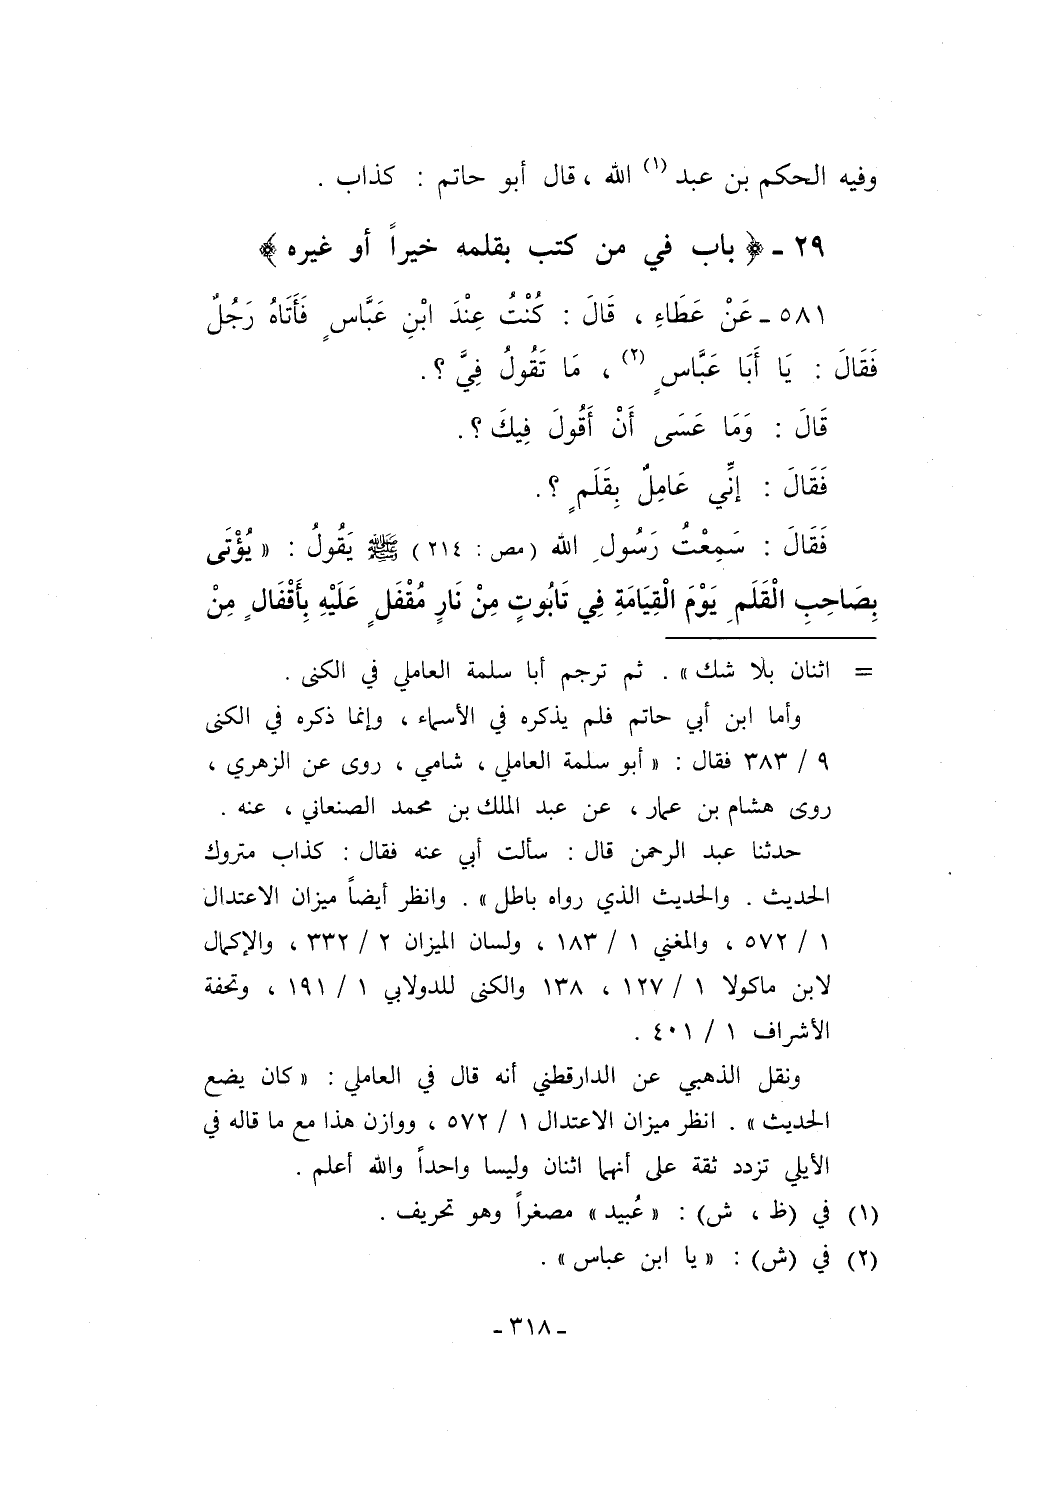 وفيه الحكم بن عبد (١) الله ، قال أبو حاتم : كذاب .
٢٩ ـ ﴿ باب في من كتب بقلمه خيراً أو غيره ﴾
٥٨١ ـ عَنْ عَطَاءٍ ، قَالَ : كُنْتُ عِنْدَ ابْنِ عَبَّاسٍ فَأَتَاهُ رَجُلٌ
فَقَالَ : يَا أَبَا عَبَّاسٍ (٢) ، مَا تَقُولُ فِيَّ ؟ .
قَالَ : وَمَا عَسَى أَنْ أَقُولَ فِيكَ ؟ .
فَقَالَ : إنِّي عَامِلٌ بِقَلَمٍ ؟ .
فَقَالَ : سَمِعْتُ رَسُولِ الله (مص : ٢١٤) ﷺ يَقُولُ : « يُؤْتَى
بِصَاحِبِ الْقَلَمِ يَوْمَ الْقِيَامَةِ فِي تَابُوتٍ مِنْ نَارٍ مُقْفَلٍ عَلَيْهِ بِأَقْفَالٍ مِنْ
= اثنان بلا شك » . ثم ترجم أبا سلمة العاملي في الكنى .
وأما ابن أبي حاتم فلم يذكره في الأسماء ، وإنما ذكره في الكنى
٩ / ٣٨٣ فقال : « أبو سلمة العاملي ، شامي ، روى عن الزهري ،
روى هشام بن عمار ، عن عبد الملك بن محمد الصنعاني ، عنه .
حدثنا عبد الرحمن قال : سألت أبي عنه فقال : كذاب متروك
الحديث . والحديث الذي رواه باطل » . وانظر أيضاً ميزان الاعتدال
١ / ٥٧٢ ، والمغني ١ / ١٨٣ ، ولسان الميزان ٢ / ٣٣٢ ، والإكمال
لابن ماكولا ١ / ١٢٧ ، ١٣٨ والكنى للدولابي ١ / ١٩١ ، وتحفة
الأشراف ١ / ٤٠١ .
ونقل الذهبي عن الدارقطني أنه قال في العاملي : « كان يضع
الحديث » . انظر ميزان الاعتدال ١ / ٥٧٢ ، ووازن هذا مع ما قاله في
الأيلي تزدد ثقة على أنهما اثنان وليسا واحداً والله أعلم .
(١) في (ظ ، ش) : « عُبيد » مصغراً وهو تحريف .
(٢) في (ش) : « يا ابن عباس » .
ـ ٣١٨ ـ